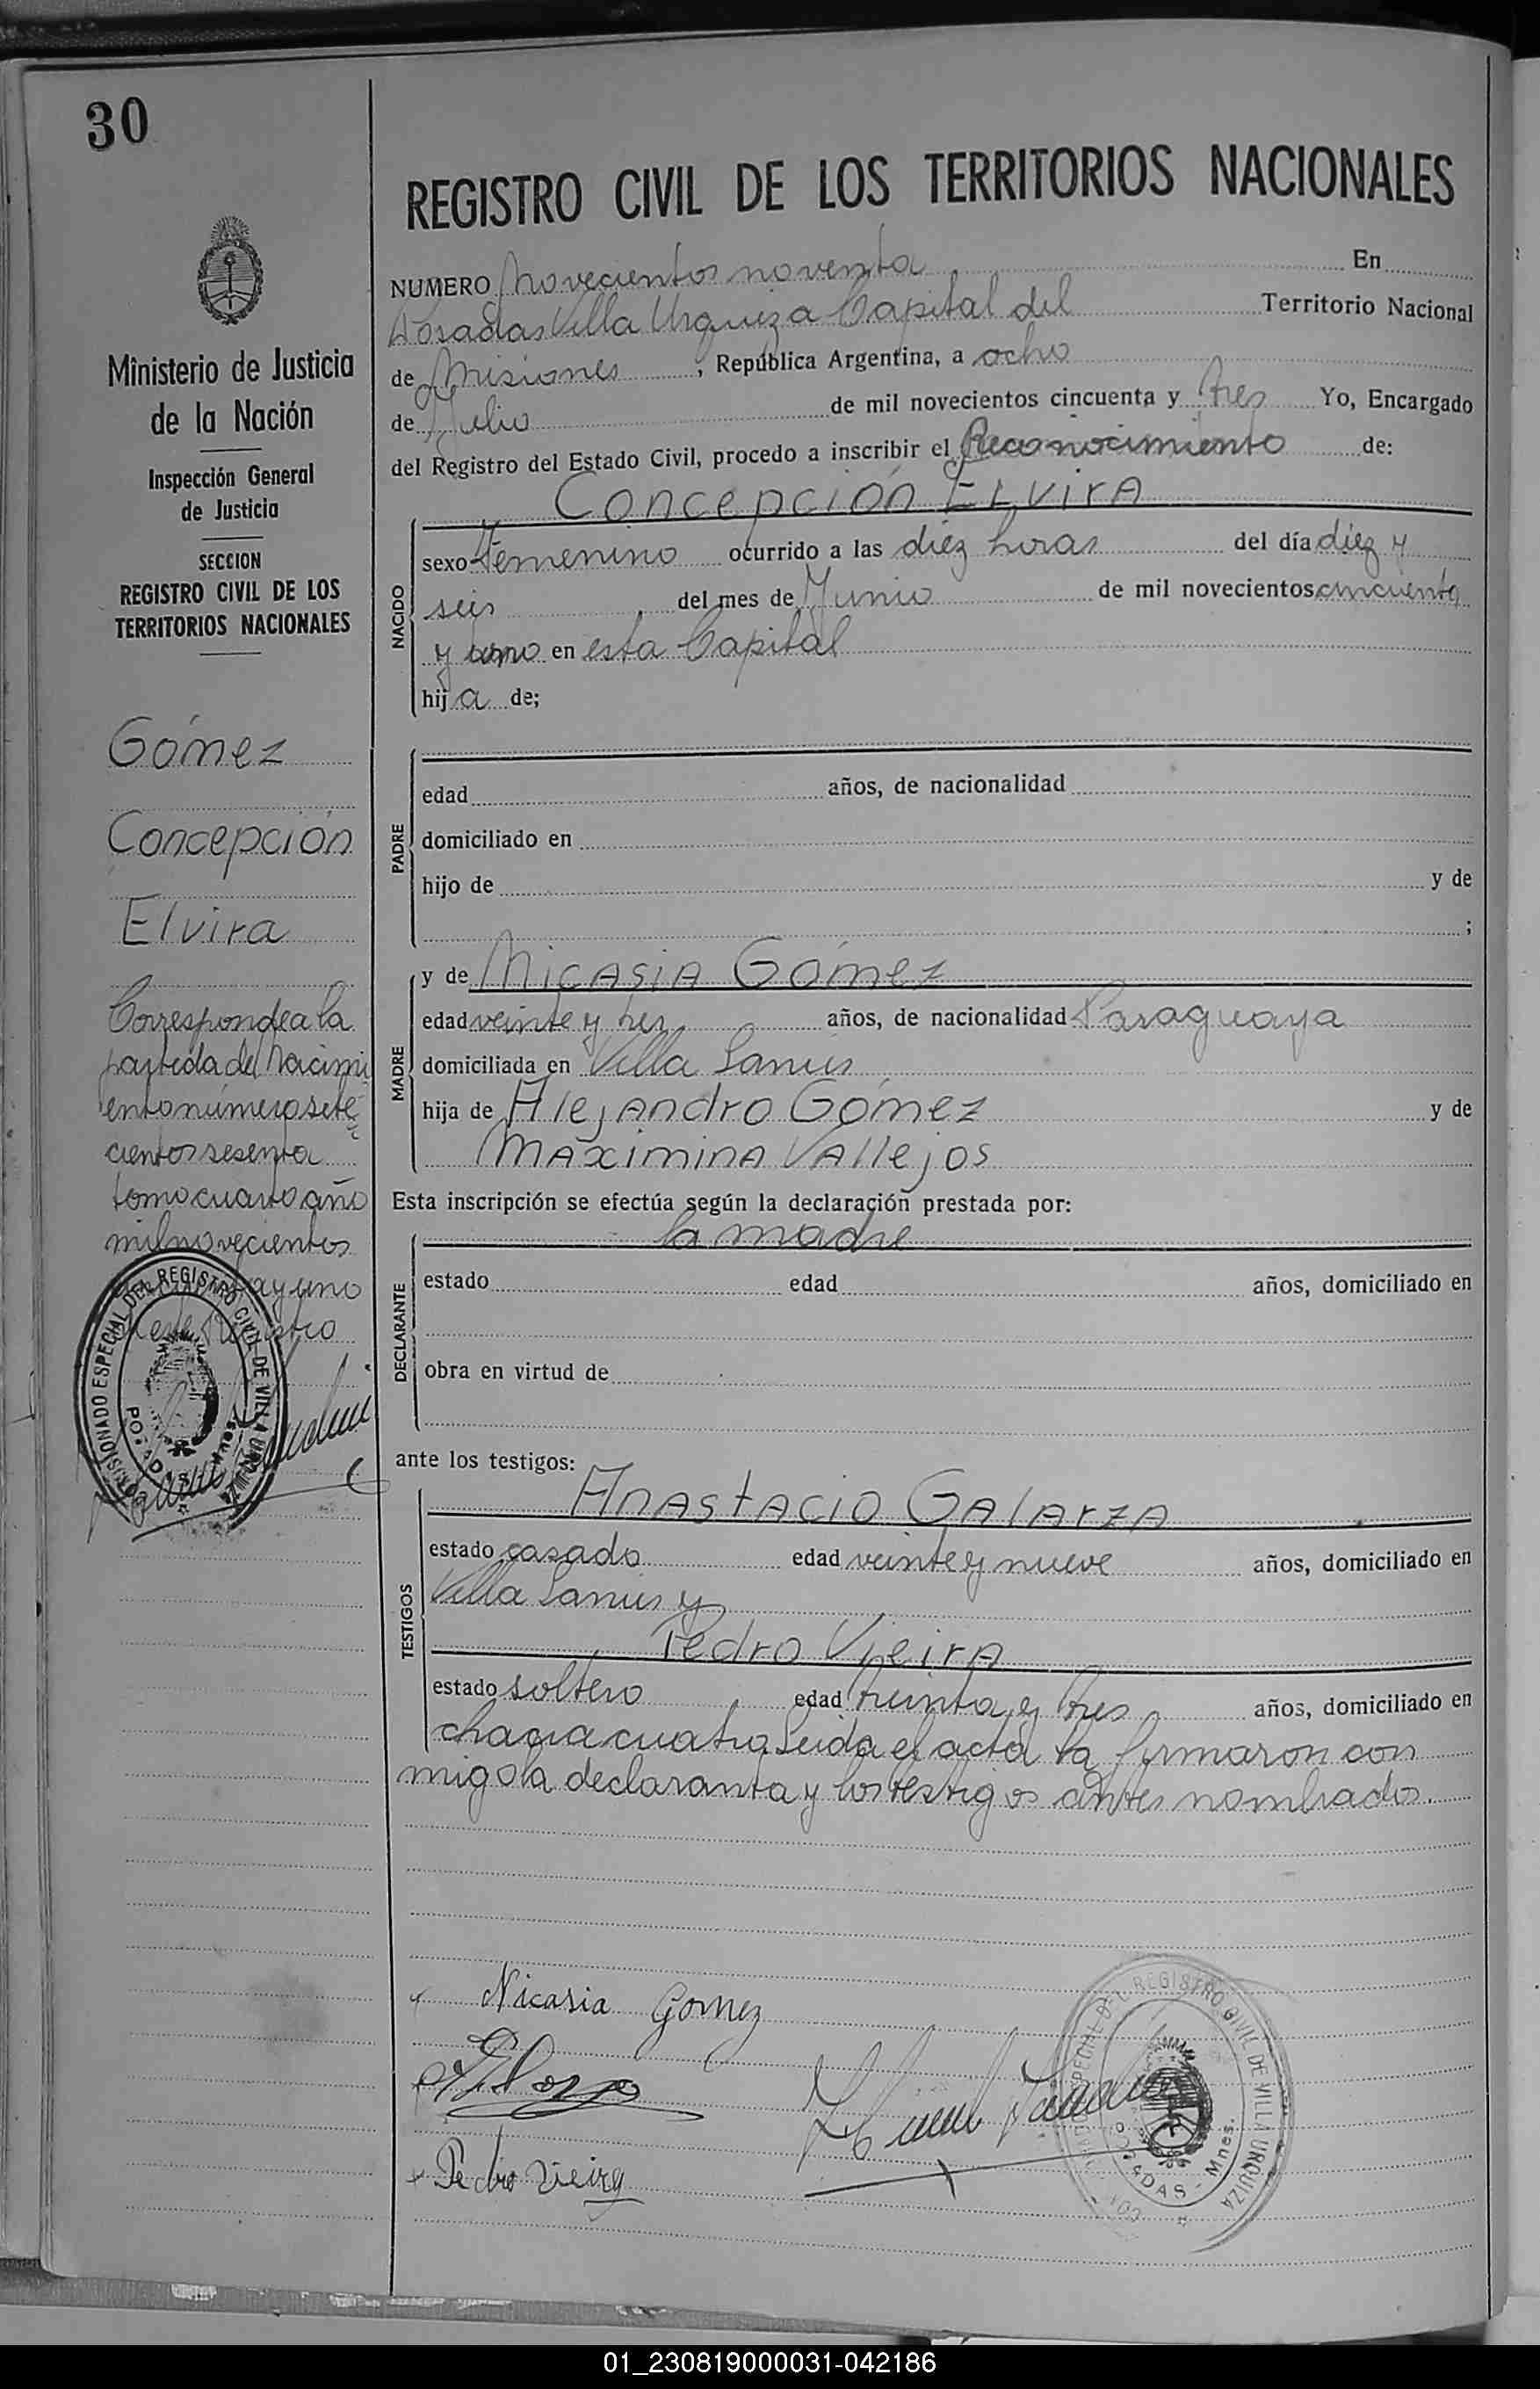 30
REGISTRO CIVIL DE LOS TERRITORIOS NACIONALES
Ministerio de Justicia
de la Nación
Inspección General
de Justicia
SECCION
REGISTRO CIVIL DE LOS
TERRITORIOS NACIONALES
Gómez
Concepción
Elvira
Corresponde a la
partida de Nacimi
ento número sete
cientos sesenta
tomo cuarto año
mil novecientos
y uno
Registro
COMISIONADO ESPECIAL DEL REGISTRO CIVIL DE VILLA URQUIZA
POSADAS - Mnes.
NUMERO Novecientos noventa En
Posadas Villa Urquiza Capital del Territorio Nacional
de Misiones ; República Argentina, a ocho
de Julio de mil novecientos cincuenta y tres Yo, Encargado
del Registro del Estado Civil, procedo a inscribir el Reconocimiento de:
Concepción Elvira
NACIDO
sexo Femenino ocurrido a las diez horas del día diez y
seis del mes de Junio de mil novecientos cincuenta
y uno en esta Capital
hija de;
PADRE
edad años, de nacionalidad
domiciliado en
hijo de y de
;
MADRE
y de Nicasia Gómez
edad veinte y tres años, de nacionalidad Paraguaya
domiciliada en Villa Lanús
hija de Alejandro Gómez y de
Maximina Vallejos
Esta inscripción se efectúa según la declaración prestada por:
la madre
DECLARANTE
estado edad años, domiciliado en
obra en virtud de
ante los testigos:
TESTIGOS
Anastacio Galarza
estado casado edad veinte y nueve años, domiciliado en
Villa Lanús y
Pedro Vieira
estado soltero edad treinta y tres años, domiciliado en
chacra cuatro. Leida el acta la firmaron con
migo la declaranta y los testigos antes nombrados.
Nicasia Gomez
Pedro Vieira
ESPECIAL DEL REGISTRO CIVIL DE VILLA URQUIZA
POSADAS - Mnes.
01_230819000031-042186